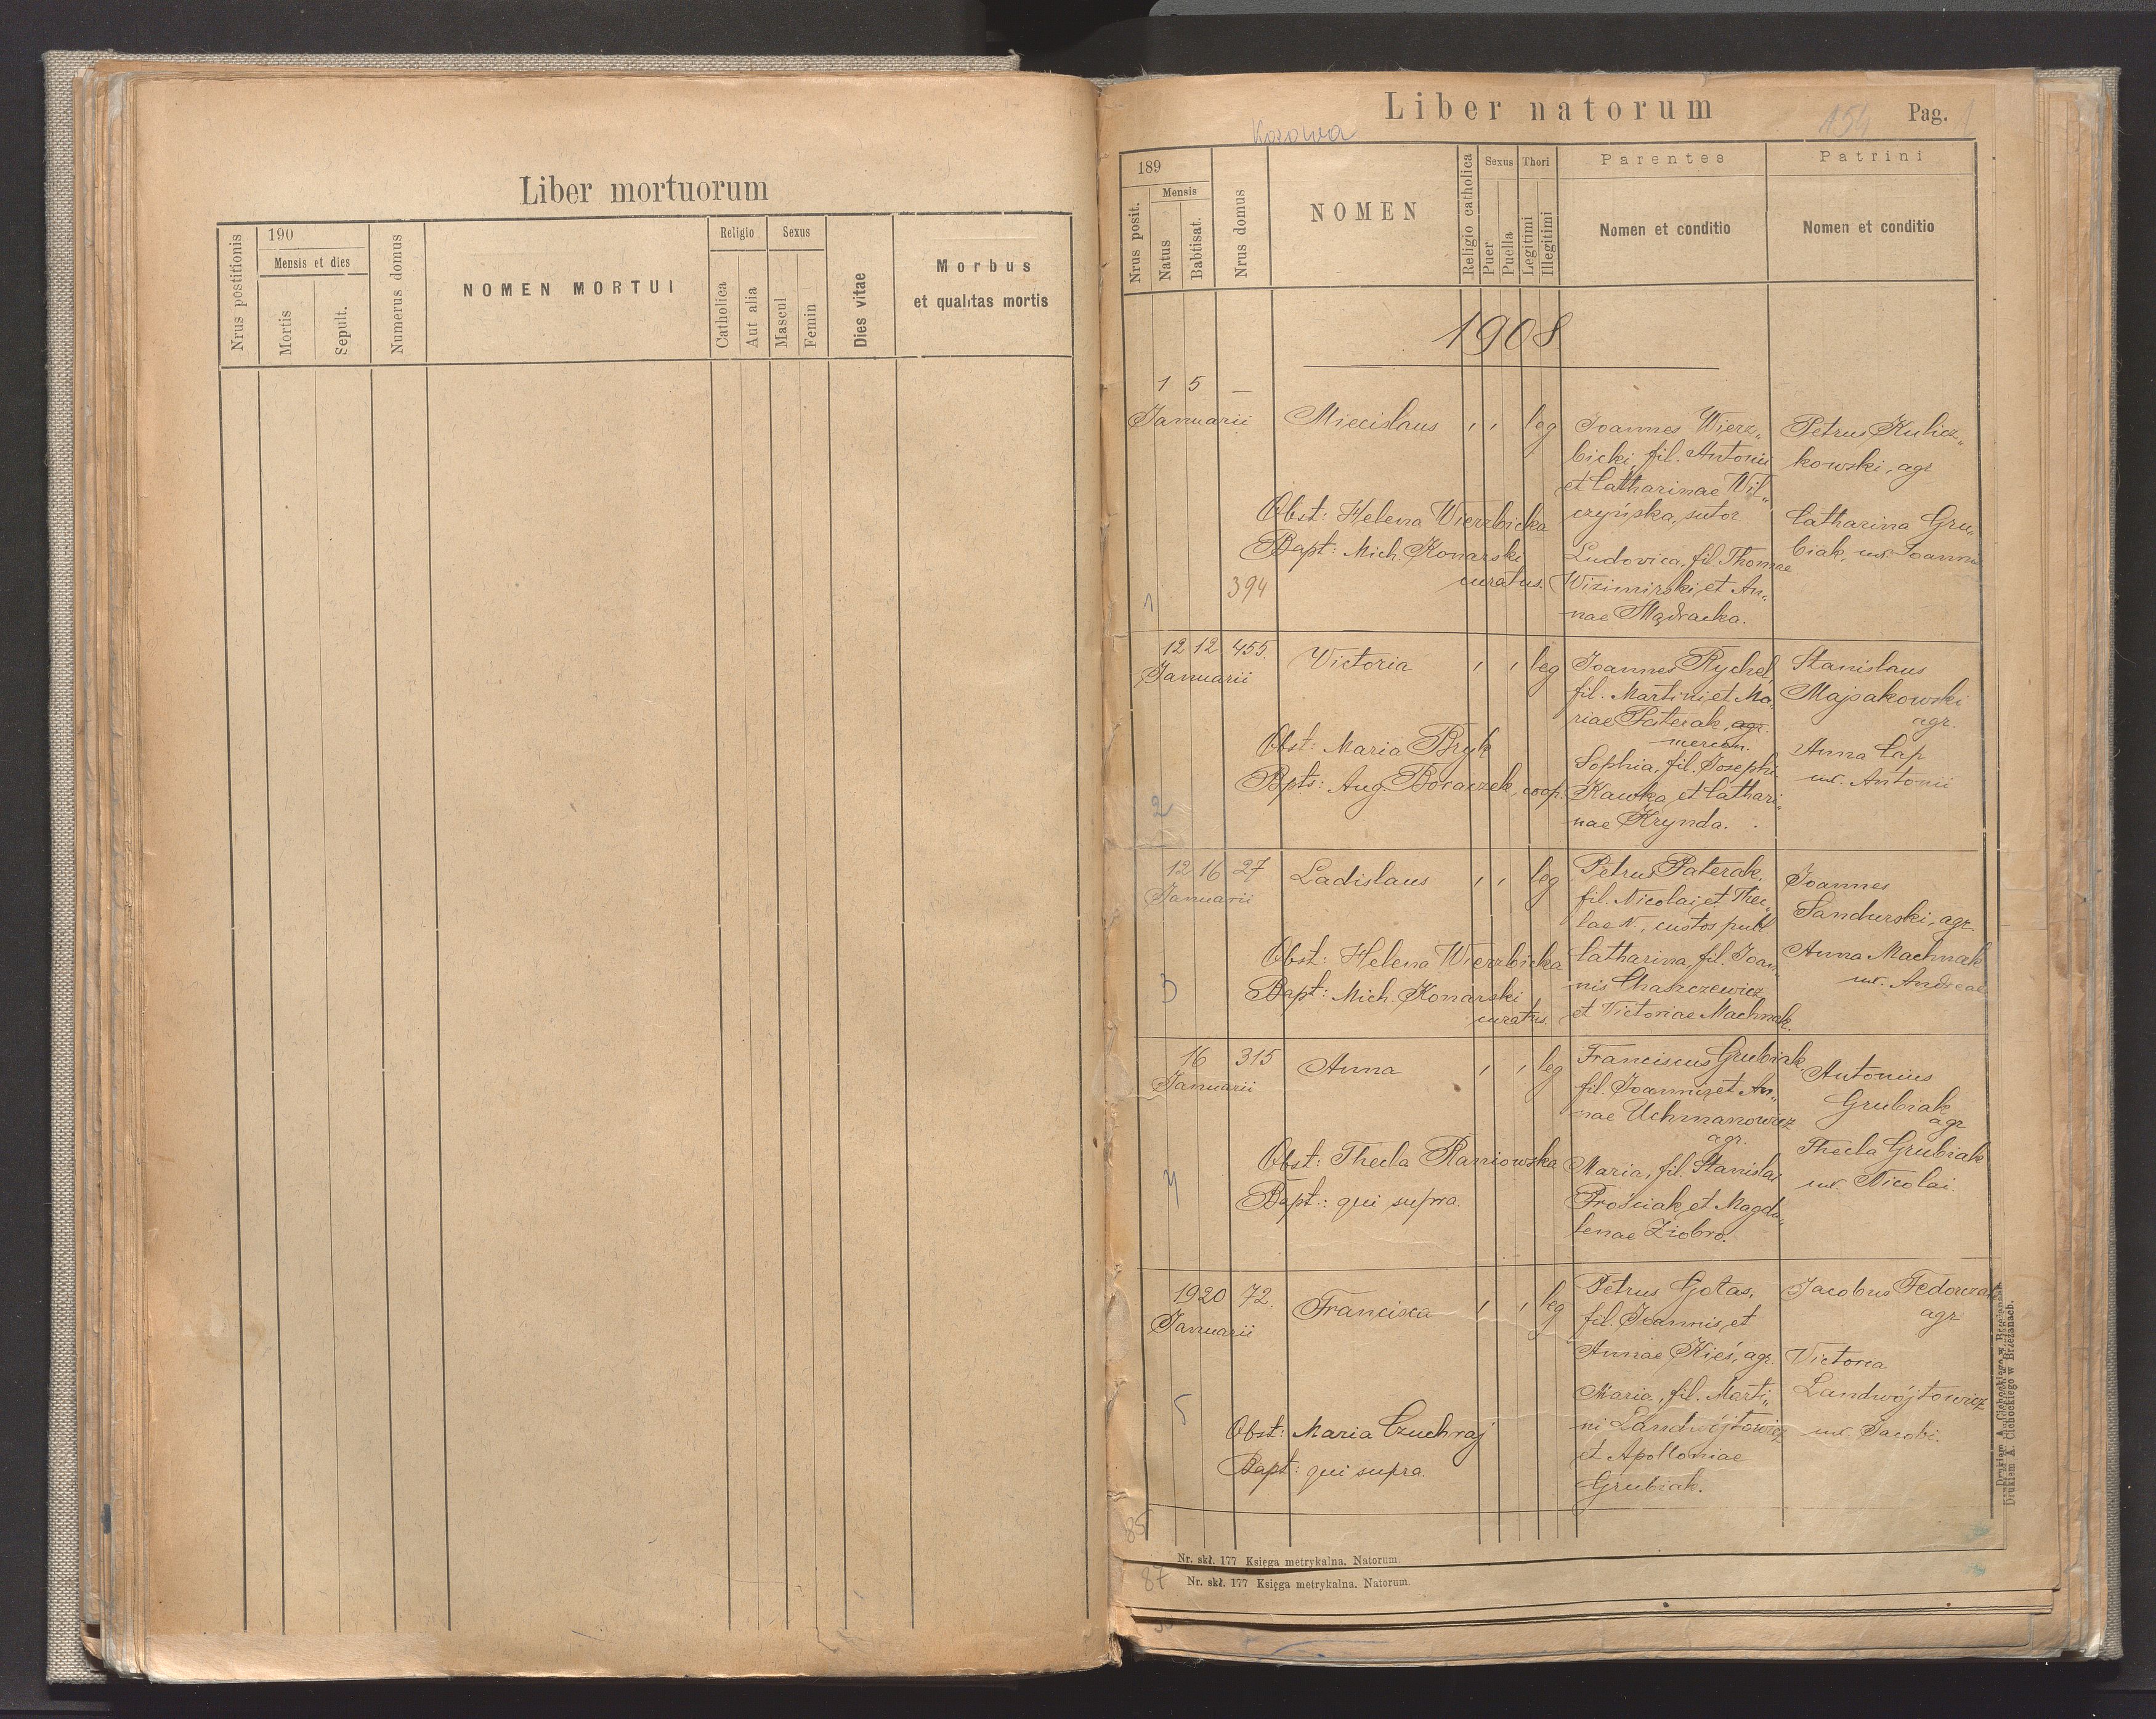 Liber mortuorum
Nrus postitionis
190
Mensis et dies
Mortis
Sepult.
Numerus domus
NOMEN MORTUI
Religio
Catholica
Aut alia
Sexus
Mascul
Femin
Dies vitae
Morbus
et qualitas mortis
Liber natorum
Kozowa
154
Pag. 1
Nrus posit.
189
Mensis
Natus
Babtisat.
Nrus domus
NOMEN
Religio catholica
Sexus
Puer
Puella
Thori
Legitimi
Illegitimi
Parentes
Nomen et conditio
Patrini
Nomen et conditio
1908
1 5 —
Januarii
Miecislaus , , leg
Obst: Helena Wierzbicka
Bapt: Mich. Konarski
curatus.
394
1
Joannes Wierz„
bicki, fil. Antonii
et Catharinae Wil„
czyńska, sutor.
Ludovica, fil. Thomae
Wizimirski, et An„
nae Mądracka.
Petrus Kulicz„
kowski, agr
Catharina Gru„
biak, ux. Joannis
12 12 455.
Januarii
Victoria , , leg
Obst: Maria Bryk
Bpts: Aug. Boraczek, coop.
2
Joannes Rychel,
fil. Martini et Ma„
riae Paterak, agr.
mercen.
Sophia, fil. Josephi
Kawka, et Cathari„
nae Krynda.
Stanislaus
Majsakowski
agr.
Anna Cap
ux. Antonii
12 16 27
Januarii
Ladislaus , , leg
Obst: Helena Wierzbicka
Bapt: Mich. Konarski
curatus.
3
Petrus Paterak,
fil. Nicolai, et Thec„
lae N., custos publ.
Catharina, fil. Joan„
nis Chaszczewicz
et Victoriae Machnak.
Joannes
Sandurski, agr.
Anna Machnak
ux. Andreae
16 315
Januarii
Anna , , leg
Obst: Thecla Raniowska
Bapt: qui supra.
4
Franciscus Grubiak,
fil. Joannis, et An„
nae Uchmanowicz
agr.
Maria, fil. Stanislai
Prośiak, et Magda„
lenae Ziobro.
Antonius
Grubiak
agr
Thecla Grubiak
ux. Nicolai
19 20 72.
Januarii
Francisca , , leg
Obst: Maria Czuchraj
Bapt: qui supra.
5
Petrus Gołas,
fil. Joannis, et
Annae Kieś, agr.
Maria, fil. Marti„
ni Landwójtowicz
et Apolloniae
Grubiak.
Jacobus Fedorczak
agr
Victoria
Landwójtowicz
ux. Jacobi.
85
Nr. skł. 177 Księga metrykalna. Natorum.
87
Nr. skł. 177 Księga metrykalna. Natorum.
Drukiem A. Cichockiego w Brzeżanach.
Drukiem A. Cichockiego w Brzeżanach.